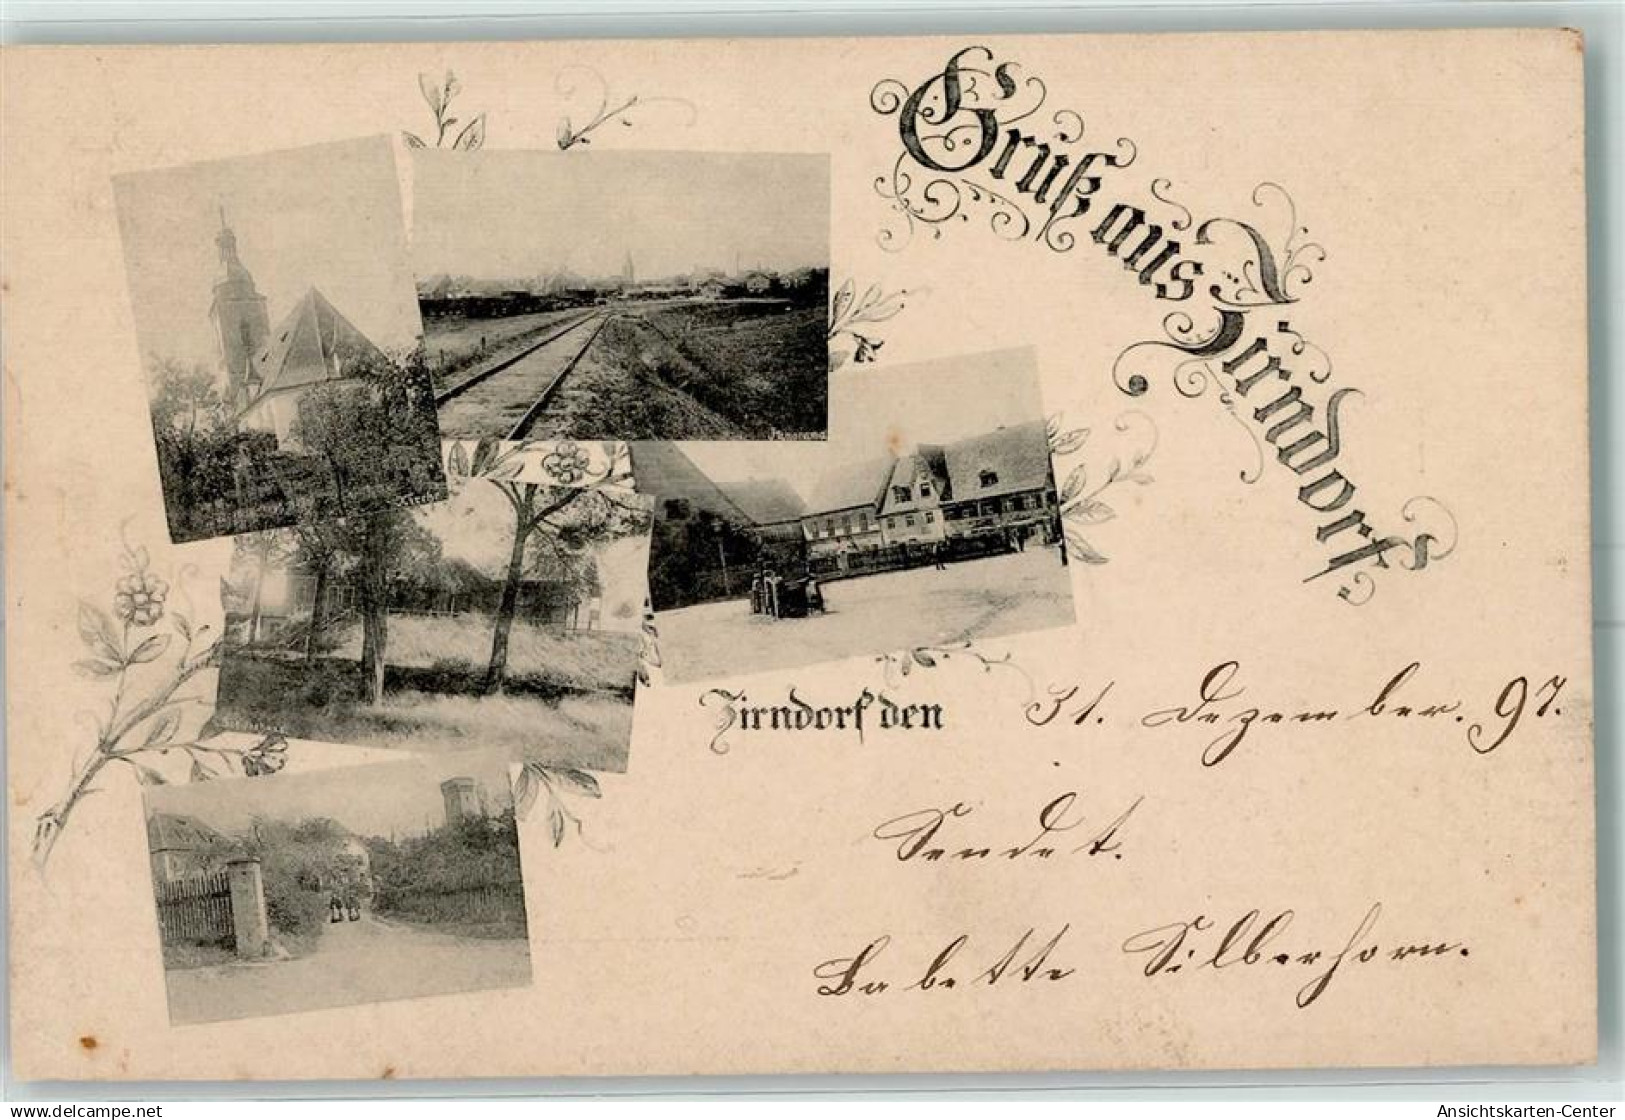 Gruß aus Zirndorf.
Panorama
Kirche
Zirndorf den 31. Dezember. 97.
Sendet.
Babette Silberhorn.
www.delcampe.net
Ansichtskarten-Center